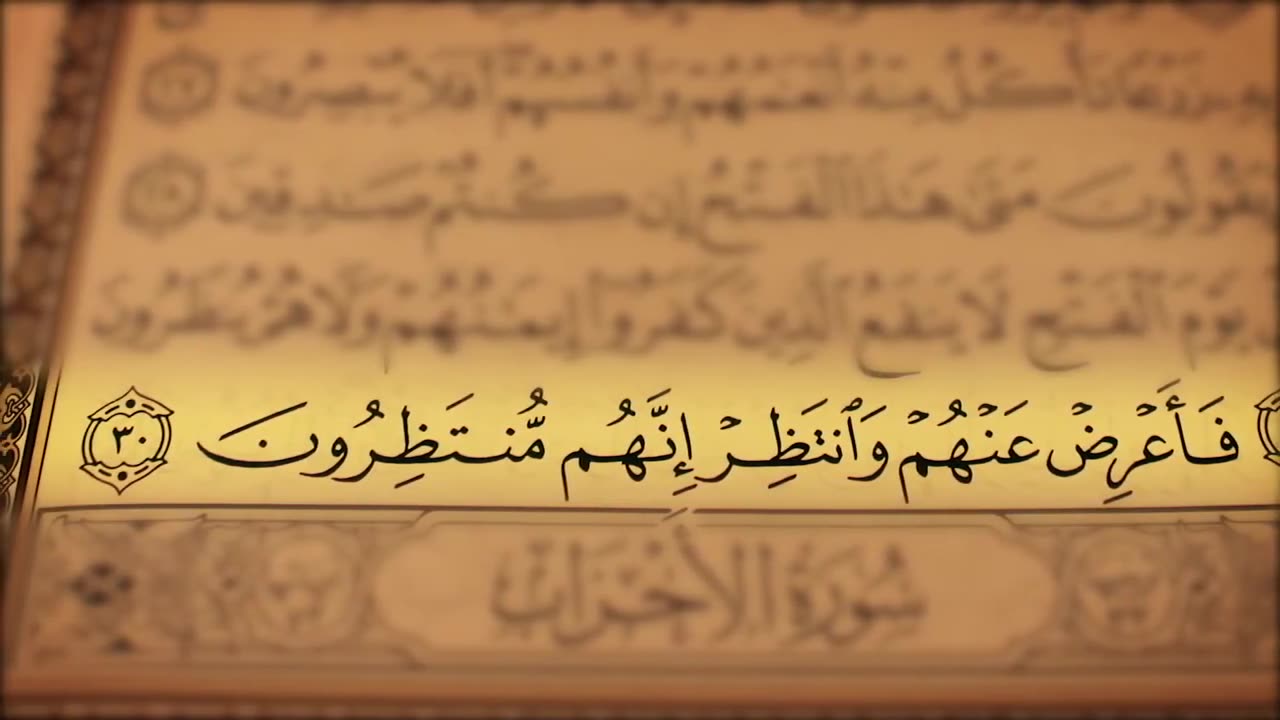 زَرْعًا تَأْكُلُ مِنْهُ أَنْعَـٰمُهُمْ وَأَنفُسُهُمْ أَفَلَا يُبْصِرُونَ ٢٧
وَيَقُولُونَ مَتَىٰ هَـٰذَا ٱلْفَتْحُ إِن كُنتُمْ صَـٰدِقِينَ ٢٨
يَوْمَ ٱلْفَتْحِ لَا يَنفَعُ ٱلَّذِينَ كَفَرُوٓا۟ إِيمَـٰنُهُمْ وَلَا هُمْ يُنظَرُونَ
فَأَعْرِضْ عَنْهُمْ وَٱنتَظِرْ إِنَّهُم مُّنتَظِرُونَ ٣٠
سُورَةُ الأَحْزَابِ